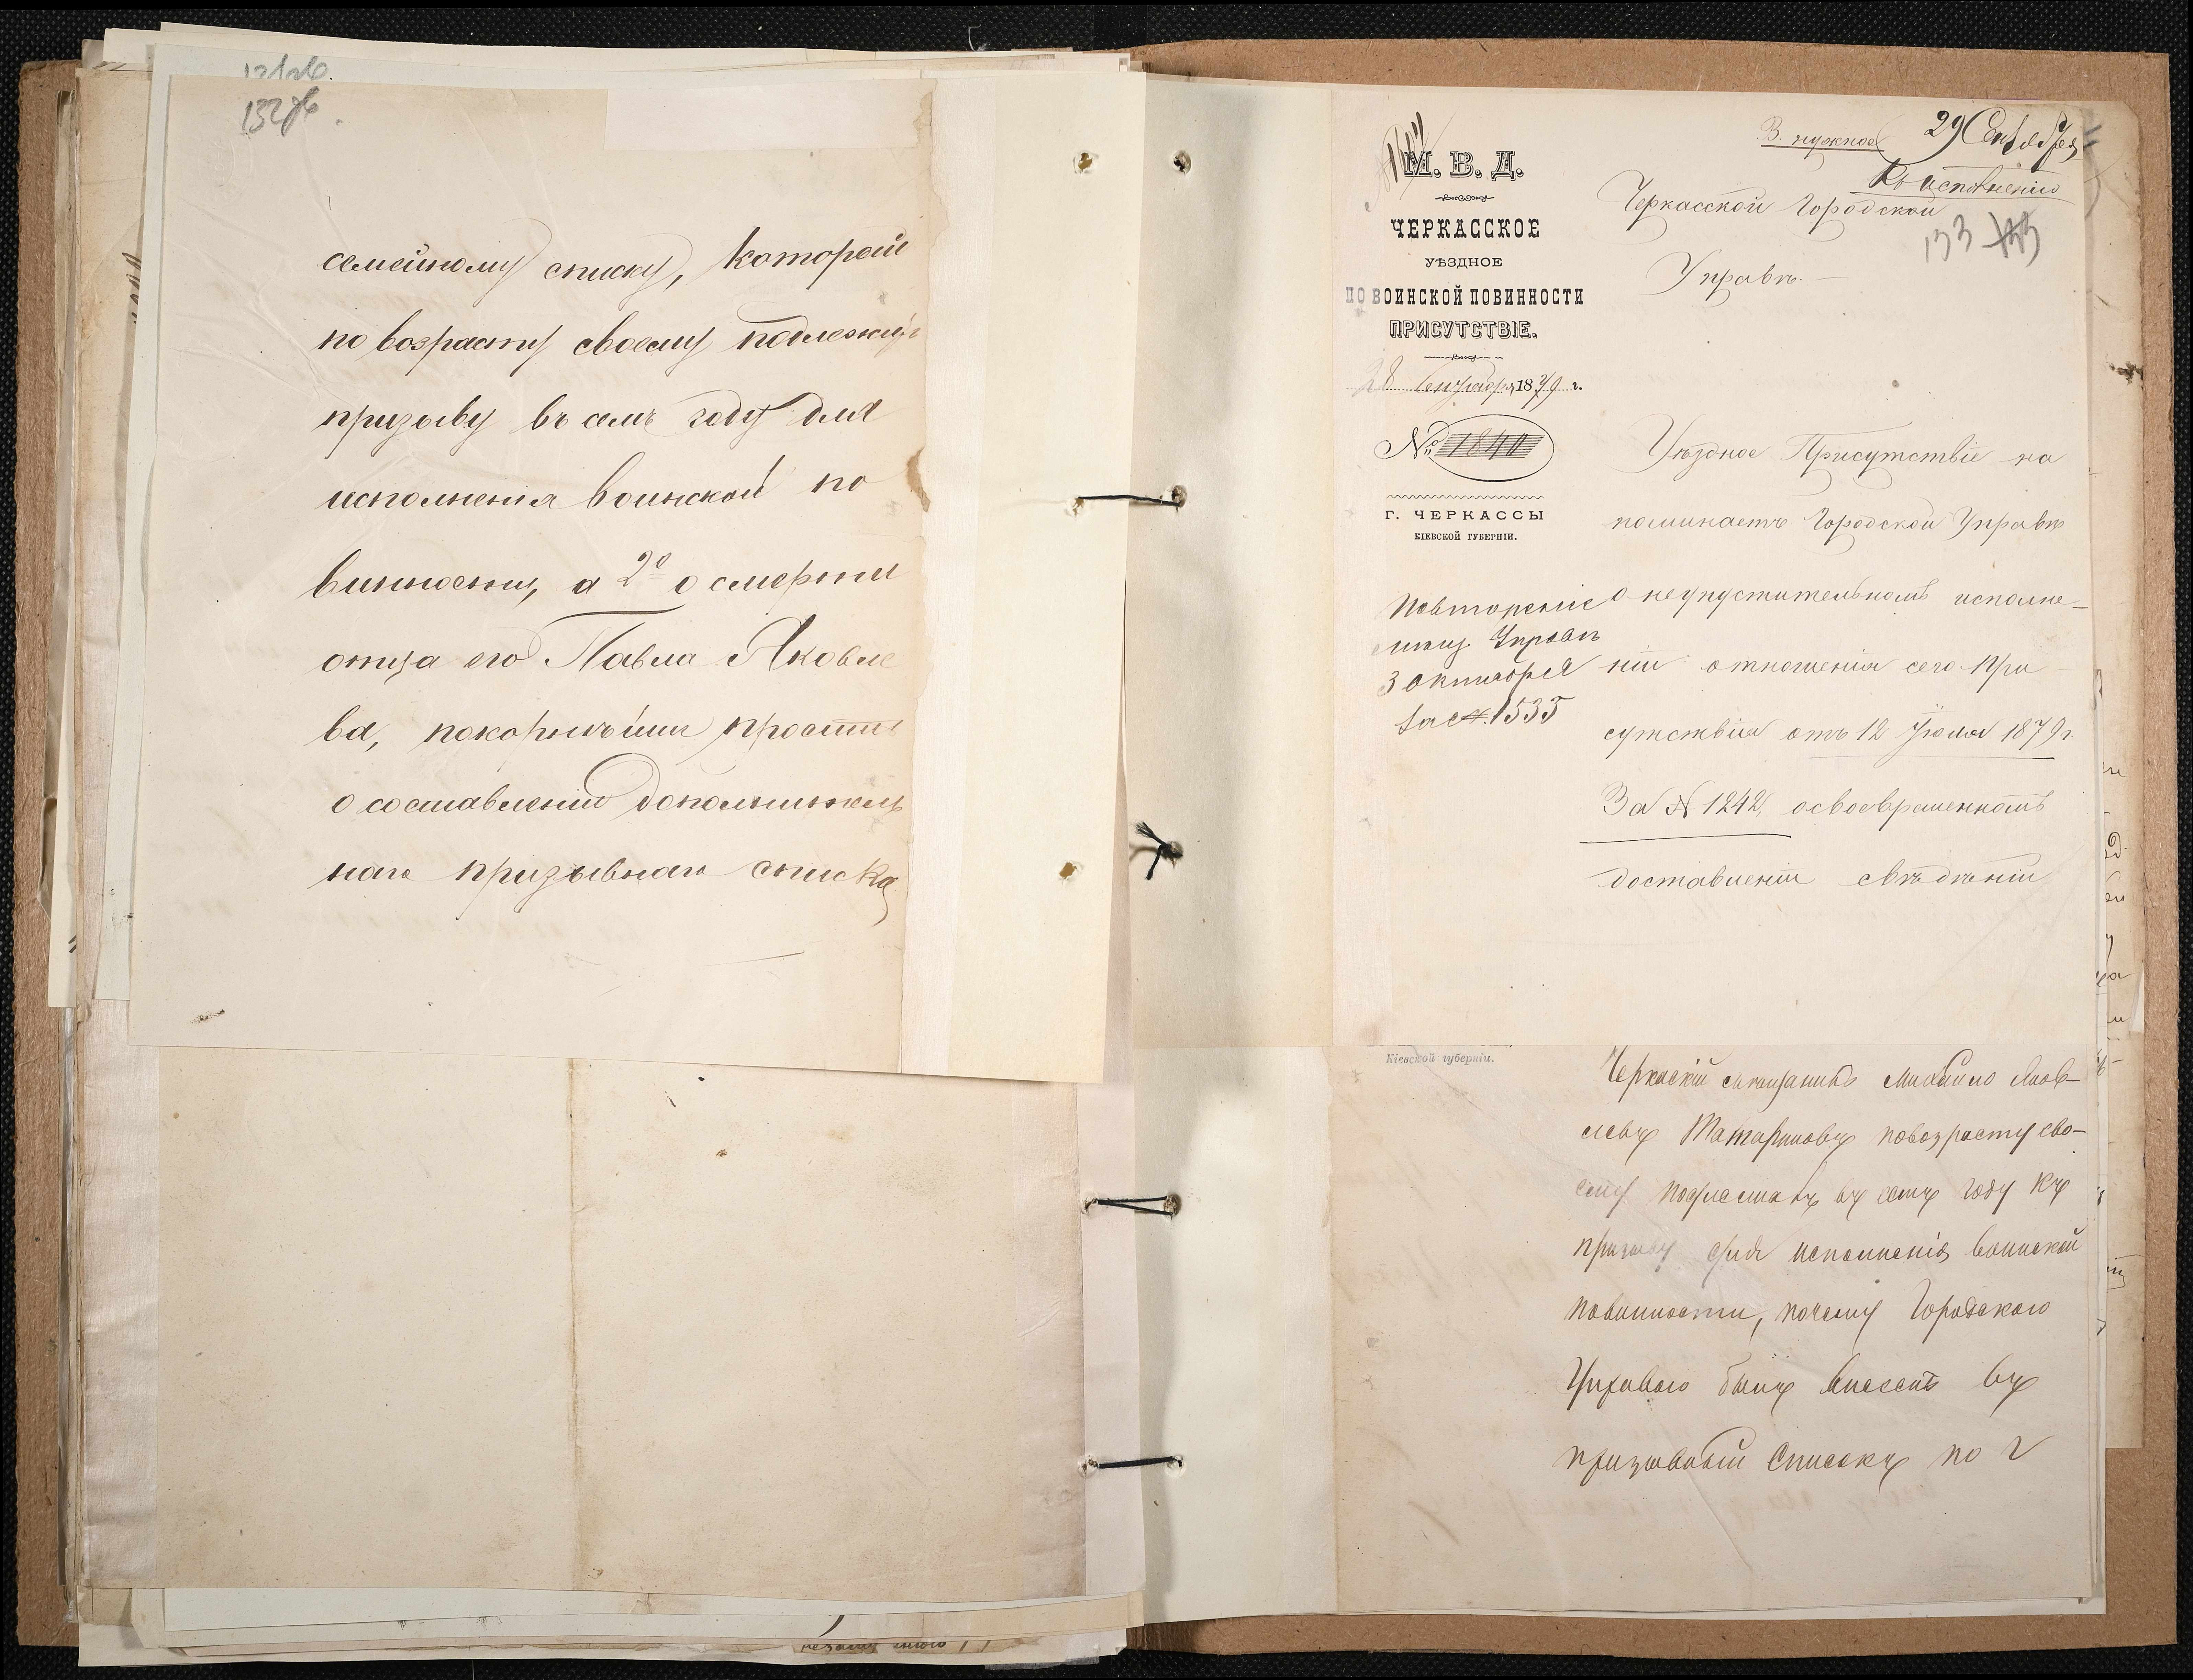 132об.
семейному списку, который
по возрасту своему подлежит
призыву въ семъ году для
исполненія воинской по
винности, а 2º о смерти
отца его Павла Яковле
ва, покорнѣйше просить
о составленіи дополнитель
наго призывнаго списка
В. нужное
29 Сентября
Къ исполненію
133
М. В. Д.
ЧЕРКАССКОЕ
УѢЗДНОЕ
ПО ВОИНСКОЙ ПОВИННОСТИ
ПРИСУТСТВІЕ.
28 Сентября 1879 г.
№ 1840
Г. ЧЕРКАССЫ
КІЕВСКОЙ ГУБЕРНІИ.
Повтореніе
Управѣ
3 октября
за №. 1535
Черкасской Городской
Управѣ.
Уѣздное Присутствіе на
поминаетъ Городской Управѣ
о неупустительномъ исполне-
ніи отношенія сего При
сутствія отъ 12 Іюля 1879 г.
За № 1242, о своевременномъ
доставленіи свѣдѣній
Кіевской губерніи.
Черкаскій мѣщанинъ Михайло Яков-
левъ Татариновъ по возрасту сво-
ему подлежитъ въ семъ году къ
призыву для исполненія воинской
повинности, почему Городскою
Управою былъ внесенъ въ
призывный списокъ по 2